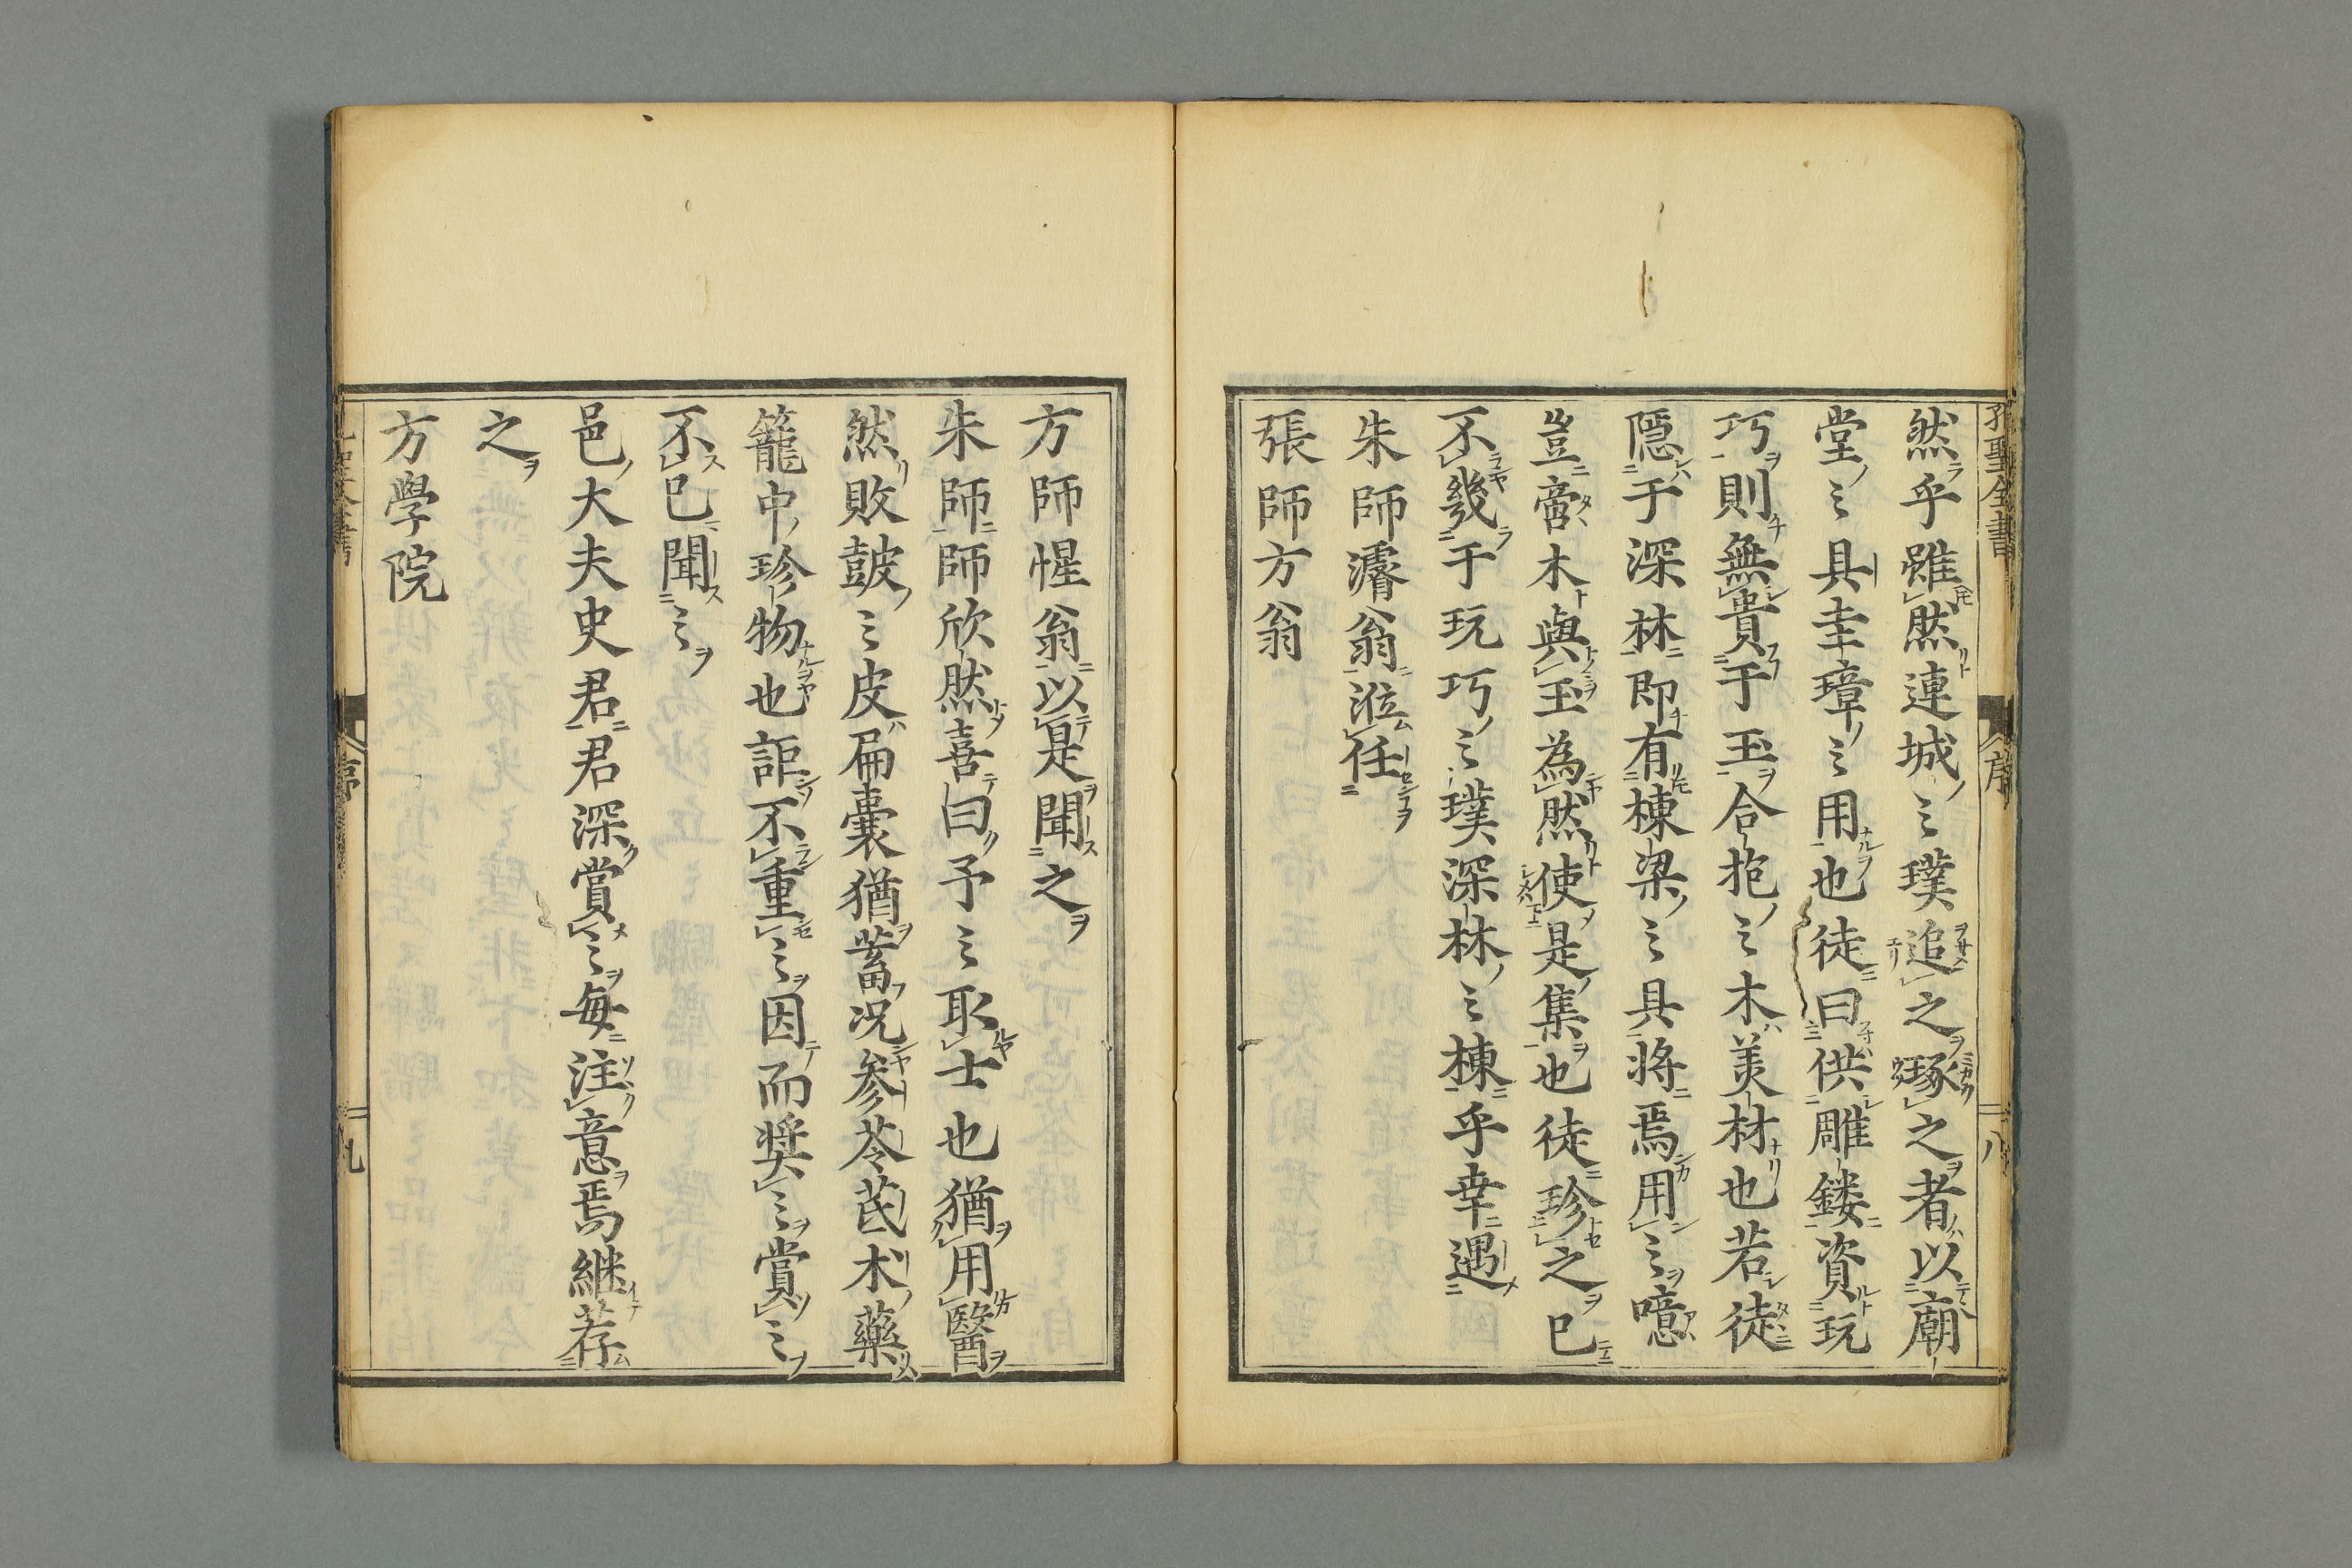 孔聖全書
序
八
然乎雖然連城之璞追之琢之者以廟
堂之具圭璋之用也徒曰供雕鏤資玩
巧則無貴于玉合抱之木美材也若徒
隱于深林即有棟梁之具將焉用之噫
豈啻木與玉為然使是集也徒珍之已
不幾于玩巧之璞深林之棟乎幸遇
朱師濬翁涖任
張師方翁
方師惺翁以是聞之
朱師師欣然喜曰予之取士也猶用醫
然敗鼓之皮扁囊猶蓄况參苓芪术藥
籠中珍物也詎不重之因而奬之賞之
不已聞之
邑大夫史君君深賞之每注意焉継荐
之
方學院
序
九